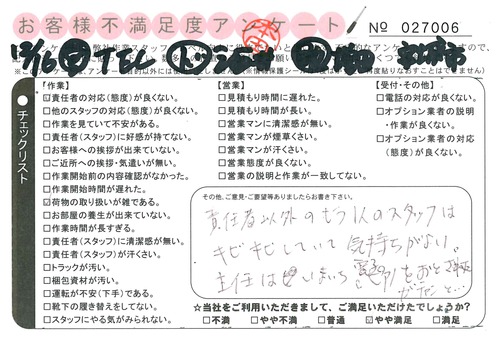 お客様不満足度アンケート
No 027006
チェックリスト
「作業」
☑責任者の対応(態度)が良くない。
□他のスタッフの対応(態度)が良くない。
□作業を見ていて不安がある。
□責任者(スタッフ)に好感が持てない。
□お客様への挨拶が出来ていない。
□ご近所への挨拶・気遣いが無い。
□作業開始前の内容確認がなかった。
□作業開始時間が遅れた。
☑荷物の取り扱いが雑である。
□お部屋の養生が出来ていない。
□作業時間が長すぎる。
□責任者(スタッフ)に清潔感が無い。
□責任者(スタッフ)が汗さい。
□トラックが汚い。
□梱包資材が汚い。
□運転が不安(下手)である。
□靴下の履き替えをしてない。
□スタッフにやる気がみられない。
【営業】
□見積もり時間に遅れた。
□見積もり時間が長い。
□営業マンに清潔感が無い。
□営業マンが煙草くさい。
□営業マンが汗さい。
□営業態度が良くない。
□営業の説明と作業が一致してない。
【受付・その他】
□電話の対応が良くない。
□オプション業者の説明
・作業が良くない。
□オプション業者の対応
(態度)が良くない。
その他、ご意見・ご要望等ありましたらお書き下さい。
責任者以外のもう1人のスタッフは
キビキビしていて気持ちがよい。
主任はいまいち
☆当社をご利用いただきまして、ご満足いただけたでしょうか?
□不満 □やや不満 □普通 ☑やや満足 □満足